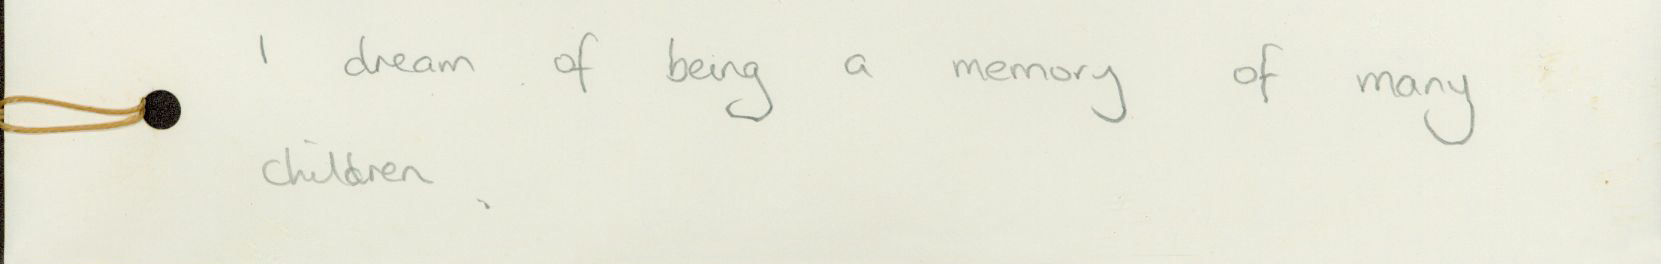 I dream of being a memory of many
children.